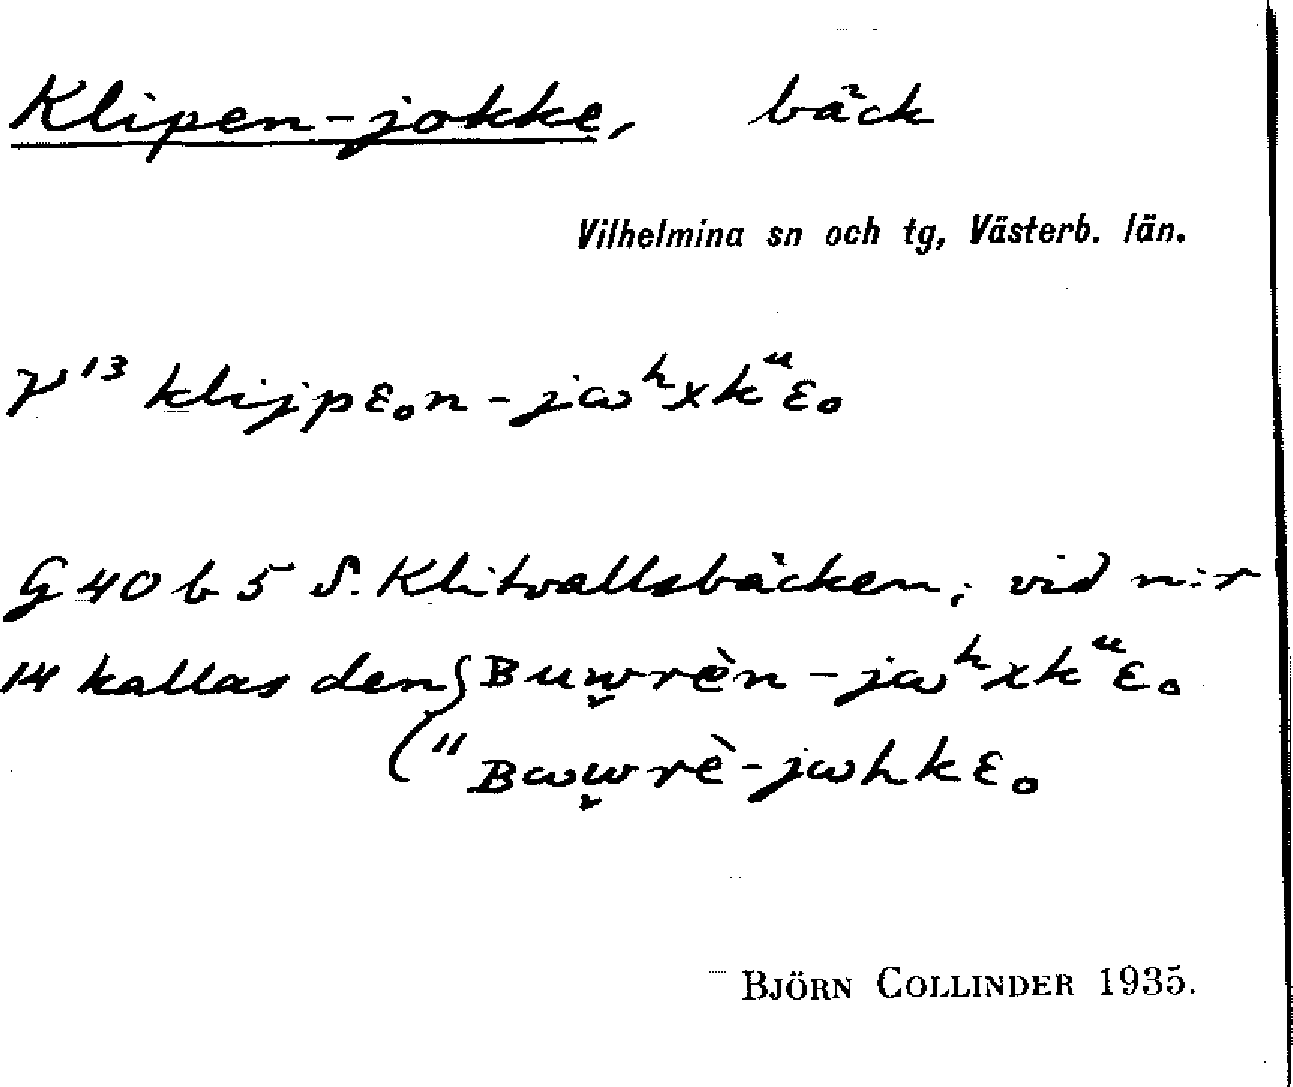 Klipen-jokke, bäck
Vilhelmina sn och tg, Västerb. län.
γ¹³ klijpɛₒn-jωʰxkᵘɛₒ
G 40 b 5 S. Klitvallsbäcken; vid n:r
14 kallas den { Buw̬rèn-jωʰxkᵘɛₒ
(" Bωw̬rè-jωhkɛₒ
BJÖRN COLLINDER 1935.